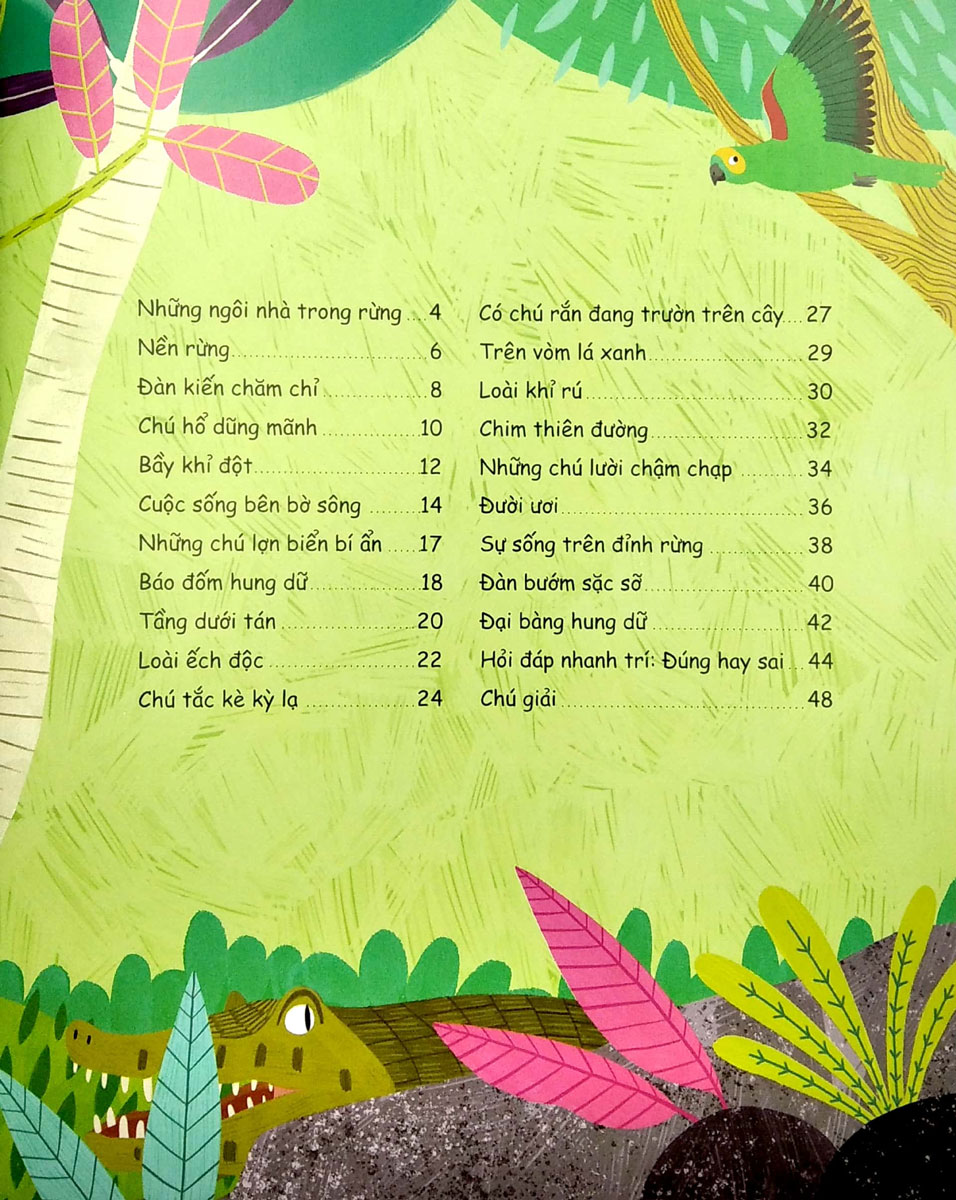 Những ngôi nhà trong rừng ....4
Nền rừng..............................6
Đàn kiến chăm chỉ .................8
Chú hổ dũng mãnh ...............10
Bầy khỉ đột..........................12
Cuộc sống bên bờ sông .........14
Những chú lợn biển bí ẩn .....17
Báo đốm hung dữ.................18
Tầng dưới tán ......................20
Loài ếch độc .......................22
Chú tắc kè kỳ lạ ..................24
Có chú rắn đang trườn trên cây....27
Trên vòm lá xanh........................29
Loài khỉ rú..................................30
Chim thiên đường........................32
Những chú lười chậm chạp ..........34
Đười ươi.....................................36
Sự sống trên đỉnh rừng ...............38
Đàn bướm sặc sỡ.........................40
Đại bàng hung dữ........................42
Hỏi đáp nhanh trí: Đúng hay sai ...44
Chú giải .....................................48